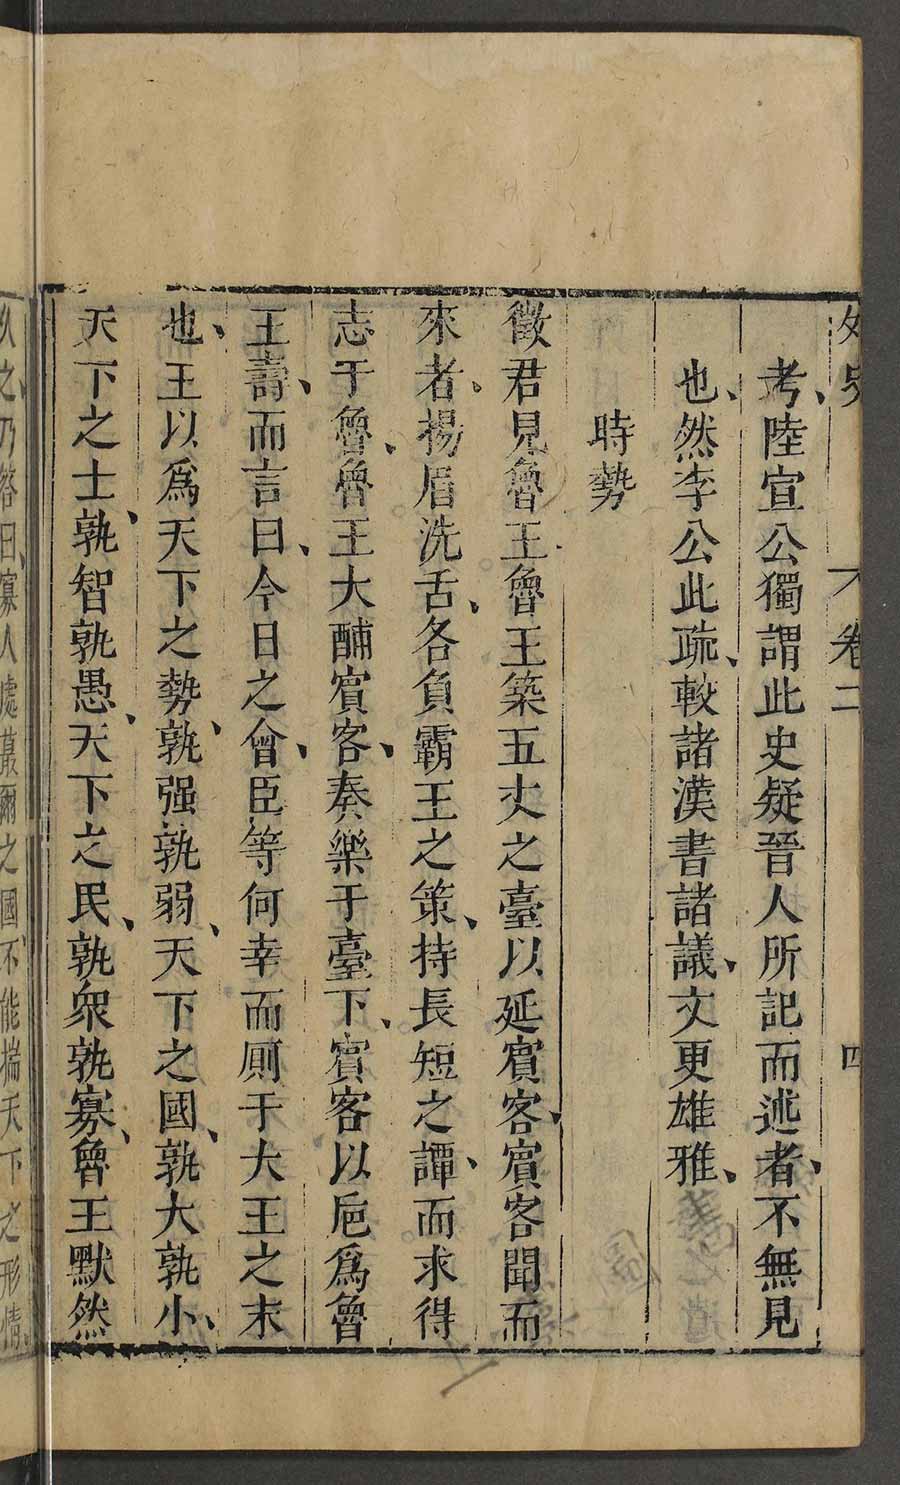 外史 卷二 四
考陸宣公獨謂此史疑晉人所記而述者不無見
也然李公此疏較諸漢書諸議文更雄雅
時勢
徵君見魯王魯王築五丈之臺以延賓客賓客聞而
來者揚眉洗舌各負霸王之策持長短之譚而求得
志于魯魯王大酺賓客奏樂于臺下賓客以巵爲魯
王壽而言曰今日之會臣等何幸而厠于大王之末
也王以爲天下之勢孰强孰弱天下之國孰大孰小
天下之士孰智孰愚天下之民孰衆孰寡魯王默然
久之乃答曰寡人處蕞爾之國不能揣天下之形情